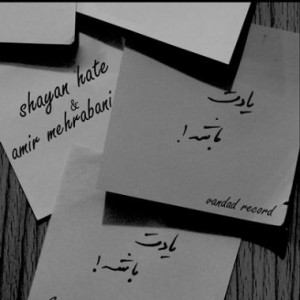 shayan hate
&
amir mehrabani
یادت
باشه!
vandad record
یادت
باشه!